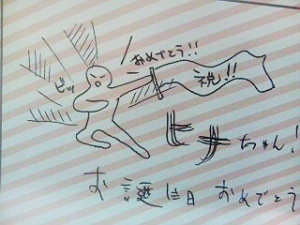 おめでとう!!
祝!!
ピッ
ヒナちゃん!
お誕生日おめでとう